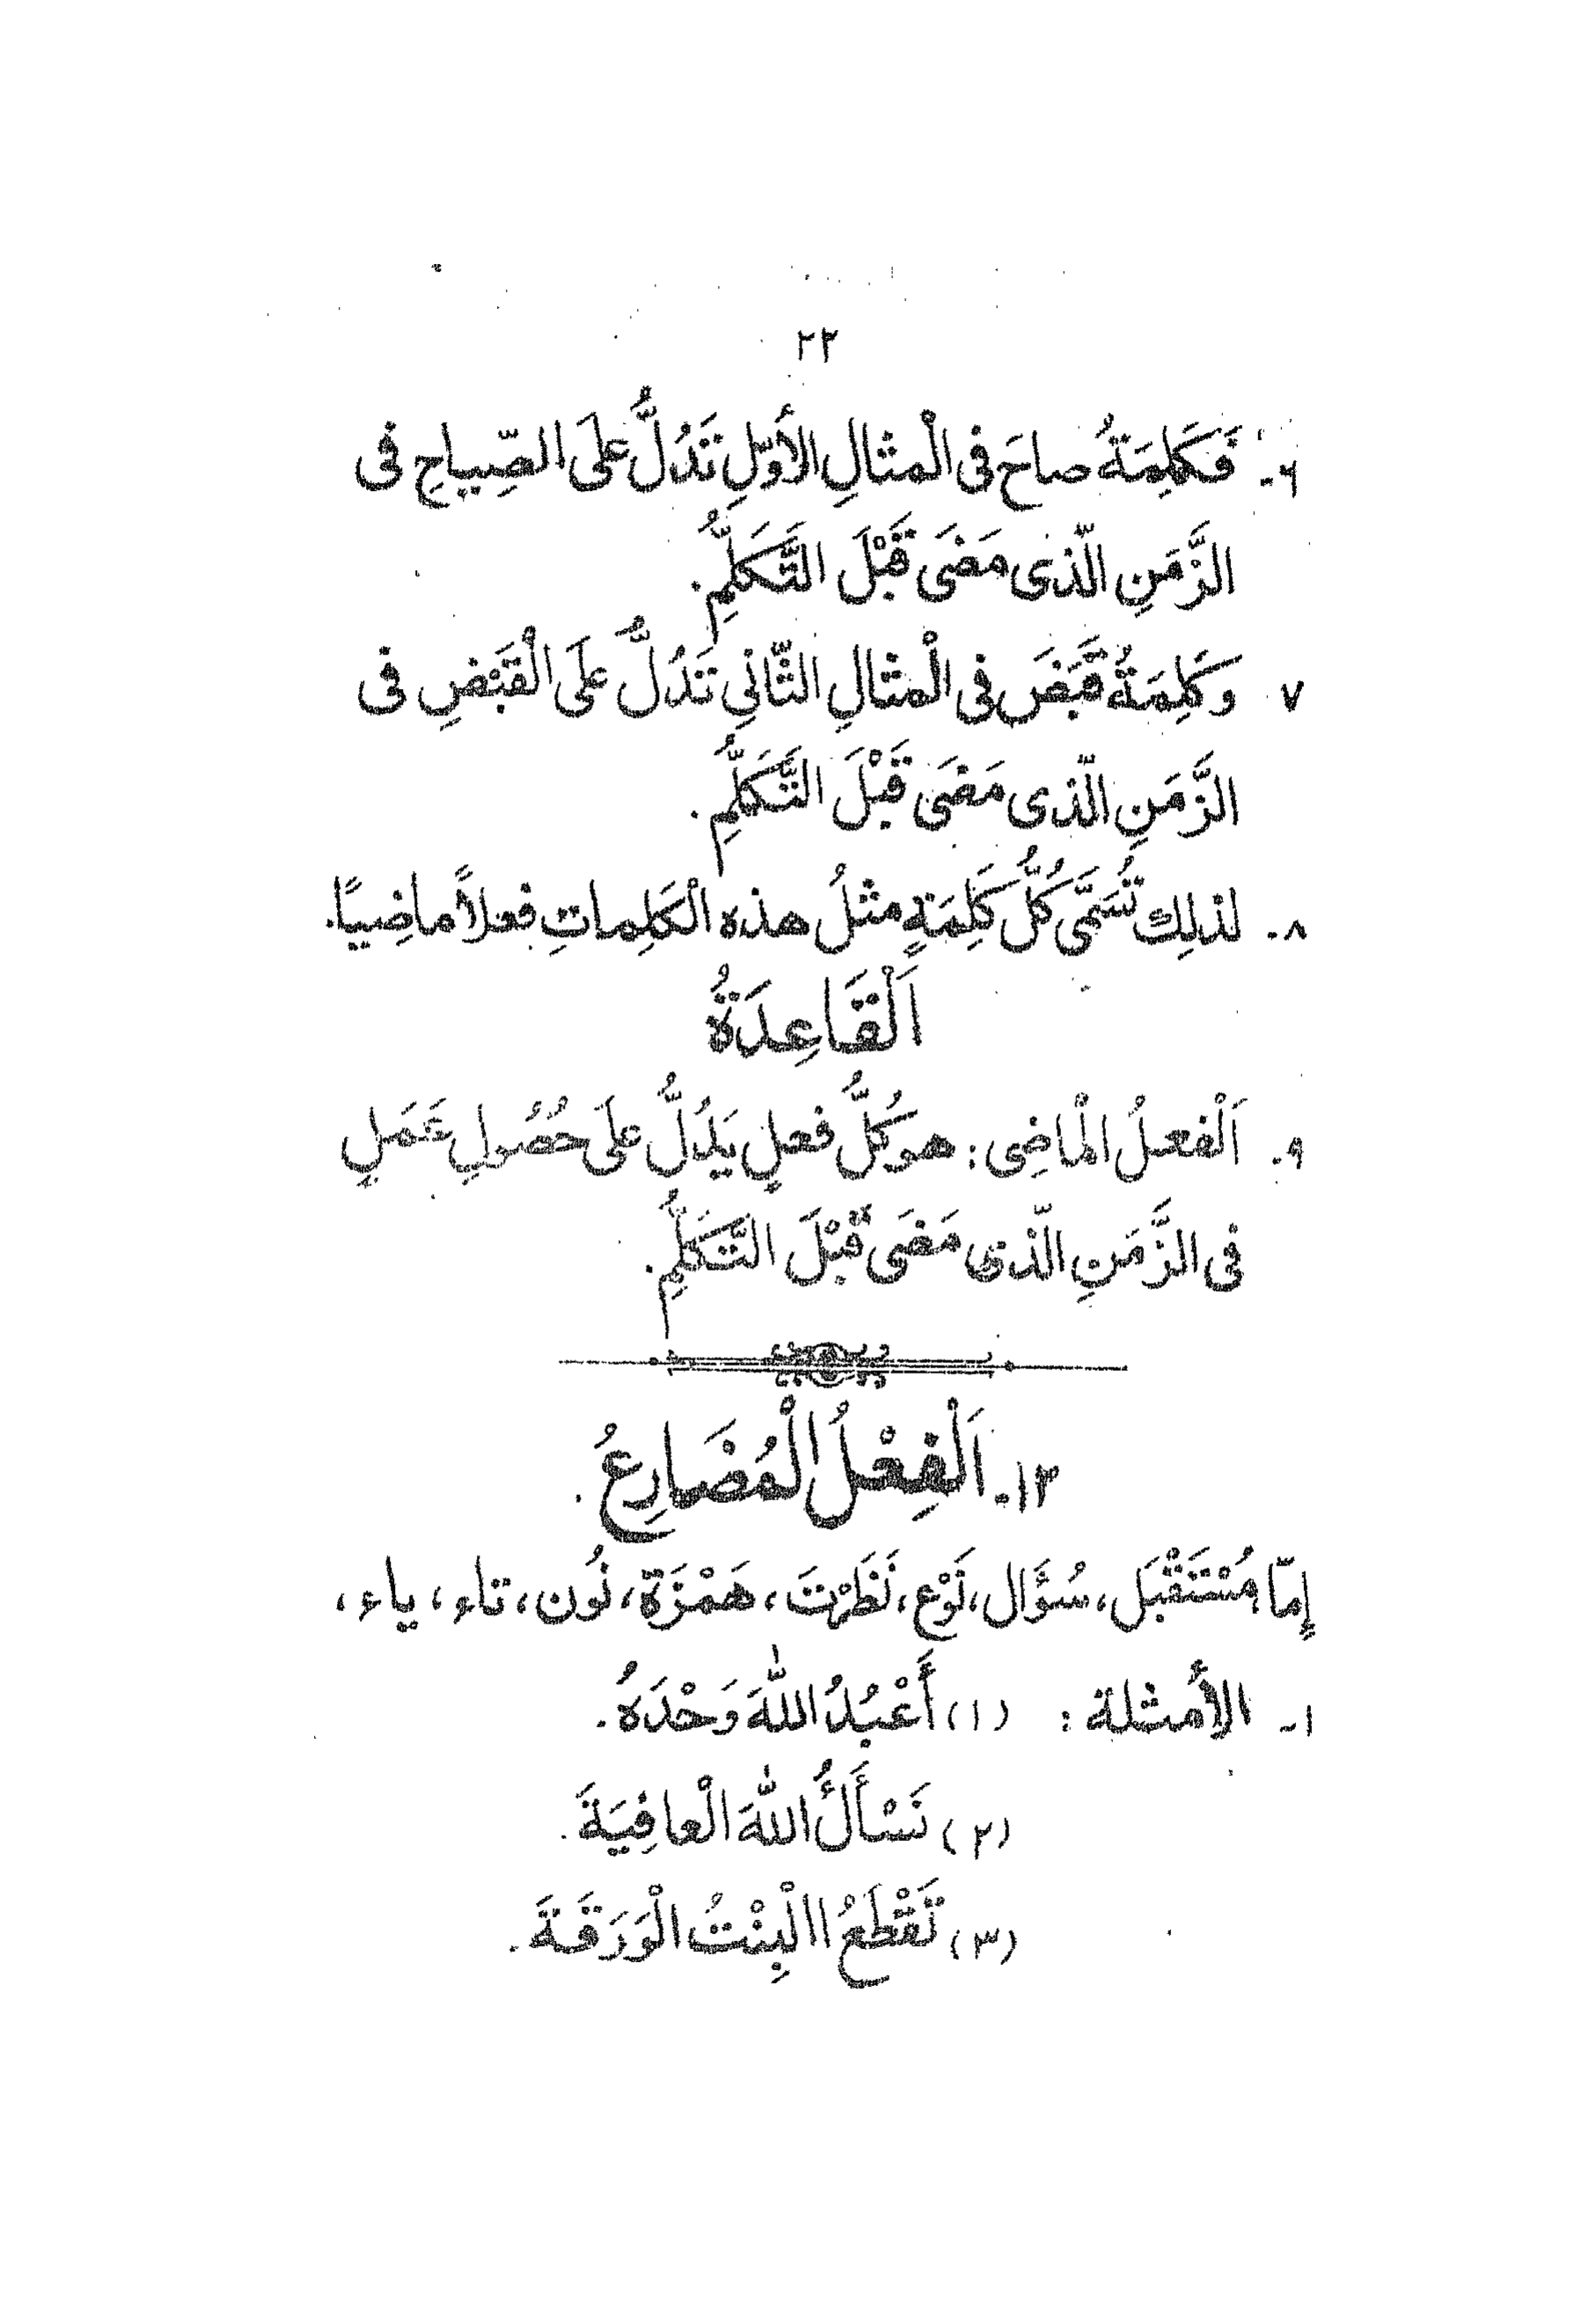 ٢٢
٦- فَكَلِمَةُ صاحَ فى الْمثالِ الأوّلِ تَدُلُّ عَلَى الصِّياحِ فى
الزَّمَنِ الّذى مَضَى قَبْلَ التَّكَلُّمِ.
٧ وَكَلِمَةُ قَبَضَ فى الْمثالِ الثّانِي تَدُلُّ عَلَى الْقَبَضِ فى
الزَّمَنِ الّذى مَضَى قَبْلَ التَّكَلُّمِ.
٨- لذلِك تُسَمَّى كُلُّ كَلِمَةٍ مثلُ هذه الْكَلِماتِ فعلاً ماضِيًا.
اَلْقَاعِدَةُ
٩- اَلْفعلُ الْماضِى: هو كُلُّ فعلٍ يَدُلُّ عَلَى حُصُولِ عَمَلٍ
فى الزَّمَنِ الّذى مَضَى قَبْلَ التَّكَلُّمِ.
١٣- اَلْفِعْلُ الْمُضَارِعُ.
إِمّا مُسْتَقْبَل، سُؤَال، نَوْع، نَظَرْتَ، هَمْزَة، نُون، تاء، ياء،
١- الأمثلة: (١) أَعْبُدُ اللّٰهَ وَحْدَهُ.
(٢) نَسْأَلُ اللّٰهَ الْعافِيَةَ.
(٣) تَقْطَعُ االْبِنْتُ الْوَرَقَةَ.